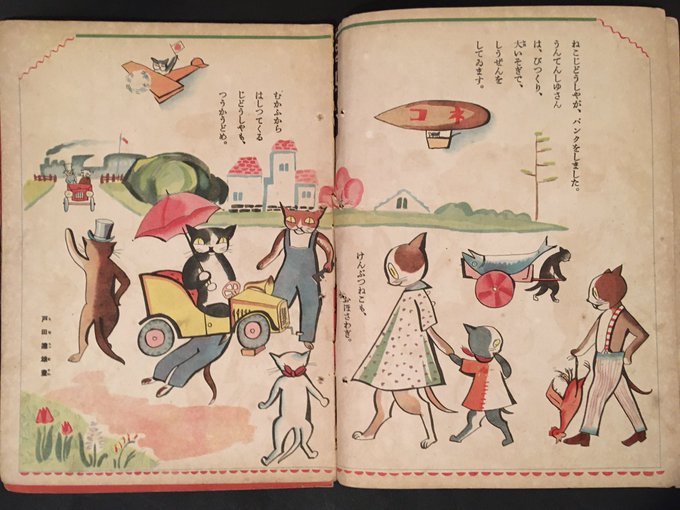 ねこじどうしやが、パンクをしました。
うんてんしゆさん
は、びつくり、
大いそぎで、
しうぜんを
してゐます。
ネコ
けんぶつねこも、
おほさわぎ。
むかふから
はしつてくる
じどうしやも、
つうかうどめ。
戸田達雄畫